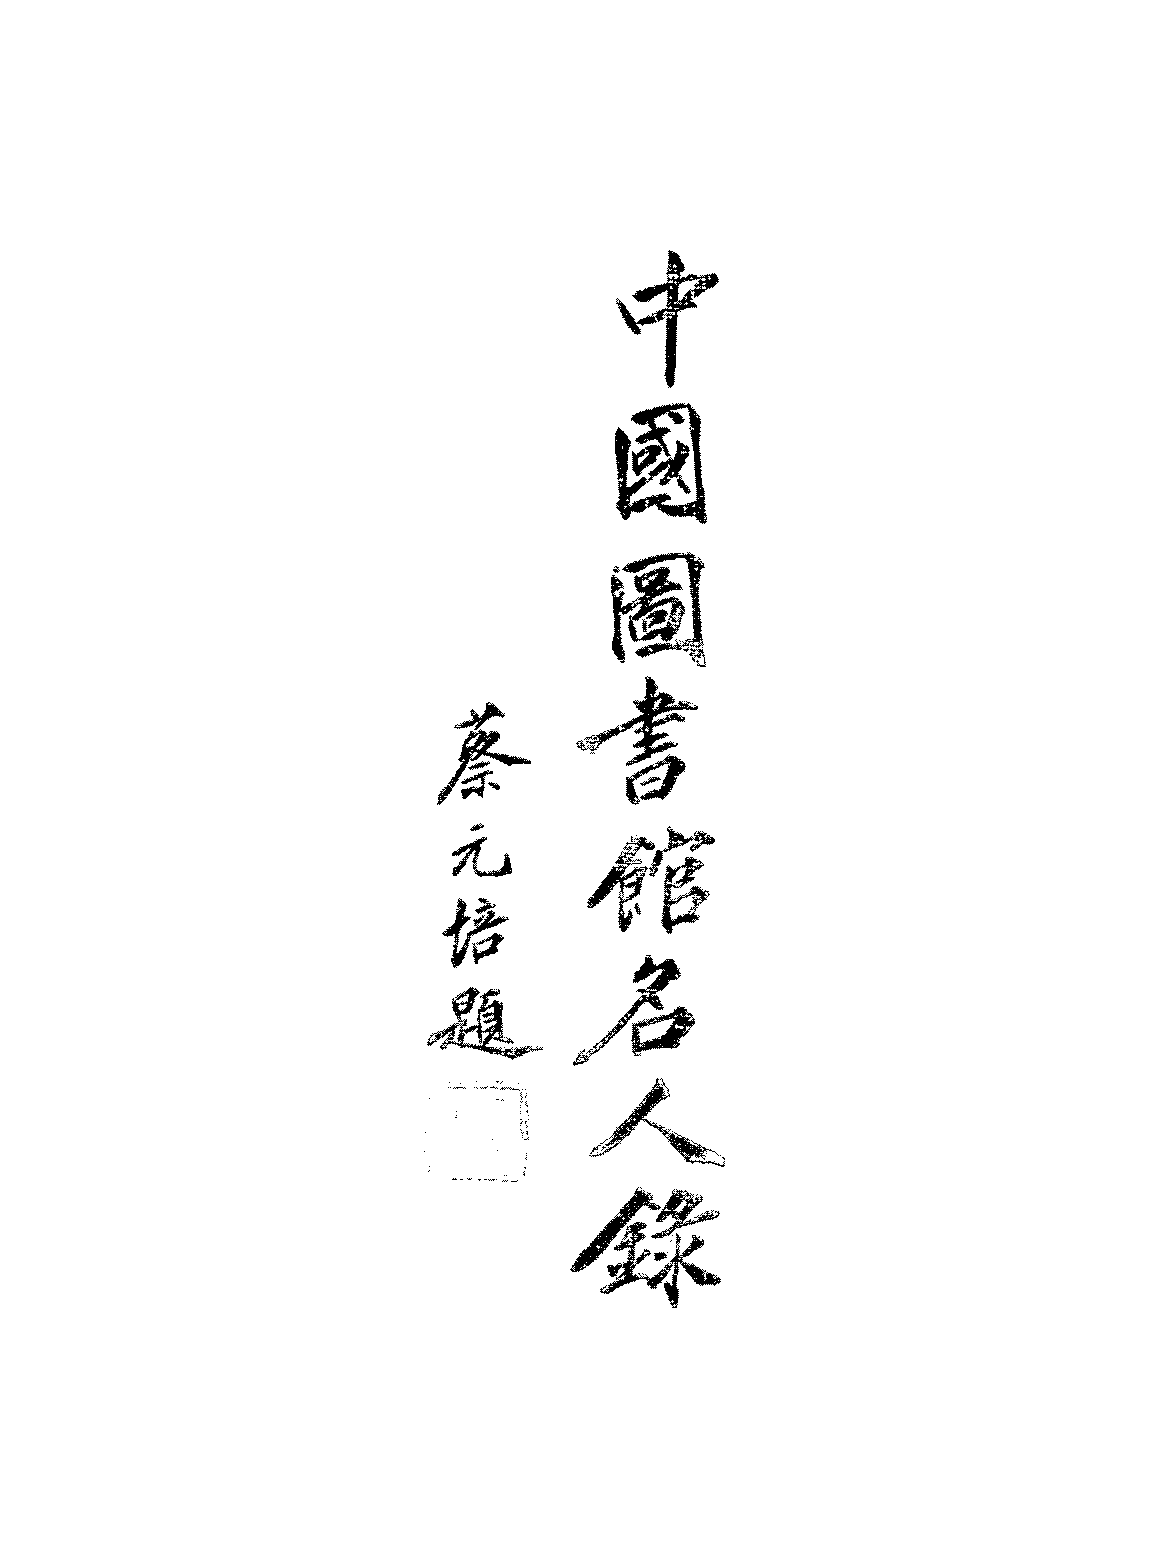 中國圖書館名人錄
蔡元培題